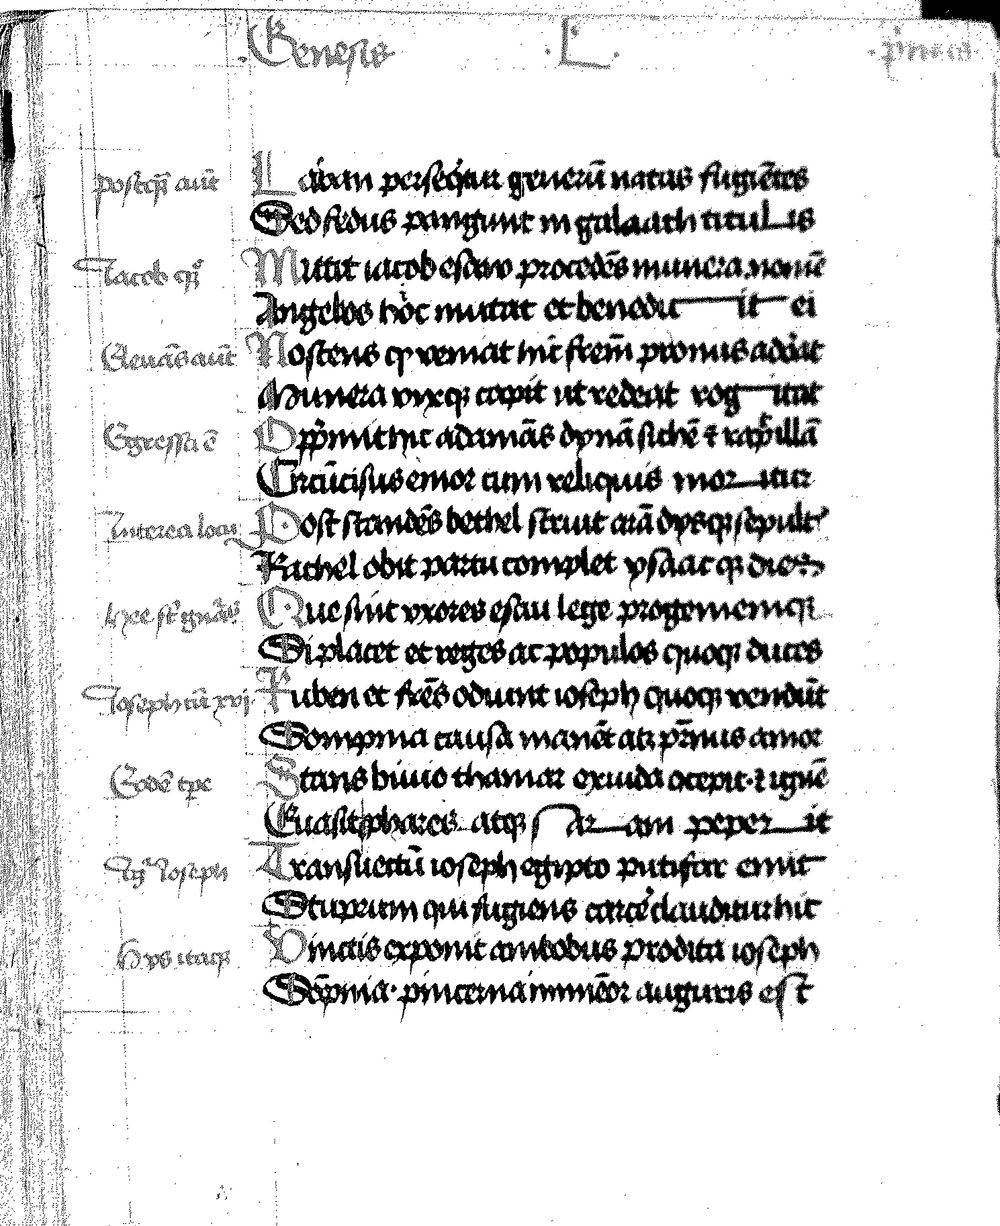 Genesis .L. p̄mus
postq̄ꝫ aūt
Laban persequitur generū natas fugiētes
Sed fedus pangunt in galaath titulis
Iacob qꝫ
Mittit iacob esavo procedēs munera
Angelos hūc mutat et benedicit ei
Eleuās aūt
Noscens ꝙ veniat hic frēm pronus adorat
Munera vixqꝫ capit ut redeat rogitat
Egressa ē
Opprimit hic adamās dynā sichē ⁊ rapit illā
Circūcisus emor cum reliquis moritur
Interea locū
Post scandēs bethel struit arā
Rachel obit partu complet ysaac qꝫ dies
hee st̄
Que sint vxores esau lege progeniemqꝫ
Si placet et reges ac populos quoqꝫ duces
Ioseph cū xvi
Ruben et frēs odiunt ioseph quoqꝫ vendūt
Sompnia causa manēt amor
Eodē tpe
Stans biuio thamar exiuda cepit ⁊ ignē
Euasit phares atqꝫ saram peperit
Igr̄ Ioseph
Transuectū ioseph egypto putifar emit
Stuprum qui fugiens carcē clauditur hic
Hys itaqꝫ
Vinctis exponit ambobus prodita ioseph
Sōpnia pincerna inmēor auguris est